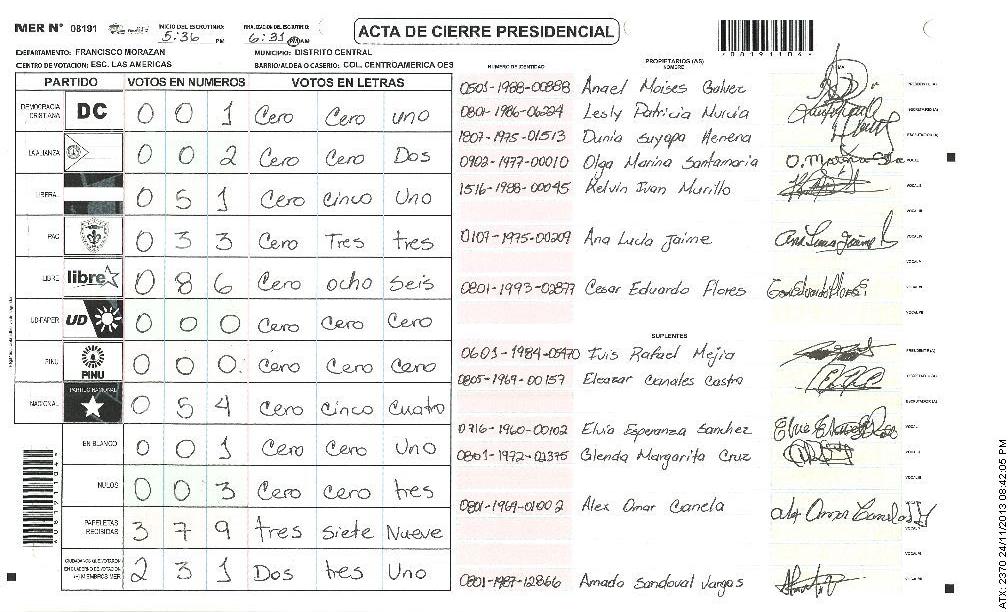 MER N° 08191 INICIO DEL ESCRUTINIO: 5:36 PM FINALIZACION DEL ESCRUTINIO: 6:31 PM AM
ACTA DE CIERRE PRESIDENCIAL
DEPARTAMENTO: FRANCISCO MORAZAN MUNICIPIO: DISTRITO CENTRAL
CENTRO DE VOTACION: ESC. LAS AMERICAS BARRIO/ALDEA O CASERIO: COL. CENTROAMERICA OES
PARTIDO VOTOS EN NUMEROS VOTOS EN LETRAS
DEMOCRACIA CRISTIANA DC 0 0 1 Cero Cero uno
LA ALIANZA 0 0 2 Cero Cero Dos
LIBERAL 0 5 1 Cero cinco Uno
PAC 0 3 3 Cero Tres tres
LIBRE libre 0 8 6 Cero ocho seis
UD-FAPER UD 0 0 0 Cero Cero Cero
PINU PINU 0 0 0 Cero Cero Cero
NACIONAL PARTIDO NACIONAL 0 5 4 Cero cinco Cuatro
EN BLANCO 0 0 1 Cero Cero Uno
NULOS 0 0 3 Cero Cero tres
PAPELETAS RECIBIDAS 3 7 9 tres siete Nueve
CIUDADANOS QUE VOTARON EN CUADERNO DE VOTACION (+) MIEMBROS MER 2 3 1 Dos tres Uno
NUMERO DE IDENTIDAD PROPIETARIOS (AS) NOMBRE FIRMA
0501-1988-00888 Anael Moises Galvez PRESIDENTE (A)
0801-1986-06224 Lesly Patricia Murcia SECRETARIO (A)
1807-1975-01513 Dunia suyapa Herrera ESCRUTADOR (A)
0902-1977-00010 Olga Marina Santamaria VOCAL I
1516-1988-00045 Kelvin Ivan Murillo VOCAL II
VOCAL III
0107-1975-00209 Ana Lucia Jaime VOCAL IV
VOCAL V
0801-1993-02877 Cesar Eduardo Flores VOCAL VI
SUPLENTES
0601-1984-03470 Luis Rafael Mejia PRESIDENTE (A)
0805-1969-00157 Eleazar Canales Castro SECRETARIO (A)
ESCRUTADOR (A)
0716-1960-00102 Elvia Esperanza Sanchez VOCAL I
0801-1972-01375 Glenda Margarita Cruz VOCAL II
0801-1969-01002 Alex Omar Canela
0801-1987-12866 Amado Sandoval Vargas
ATX 2370 24/11/2013 08:42:05 PM